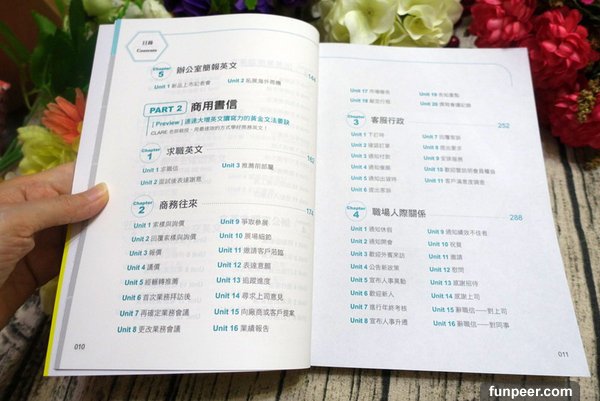 目錄
Contents
Chapter 5 辦公室簡報英文 144
Unit 1 新品上市記者會 Unit 2 拓展海外商機
PART 2 商用書信
[Preview] 速達大增英文讀寫力的黃金文法要訣
CLARE 老師親授，用最速效的方式學好商務英文！
Chapter 1 求職英文 162
Unit 1 求職信 Unit 3 推薦前部屬
Unit 2 面試後表達謝意
Chapter 2 商務往來 174
Unit 1 索樣與詢價 Unit 9 爭取參展
Unit 2 回覆索樣與詢價 Unit 10 展場細節
Unit 3 報價 Unit 11 邀請客戶蒞臨
Unit 4 議價 Unit 12 表達意願
Unit 5 經輾轉推薦 Unit 13 追蹤進度
Unit 6 首次業務拜訪後 Unit 14 尋求上司意見
Unit 7 再確定業務會議 Unit 15 向廠商或客戶提案
Unit 8 更改業務會議 Unit 16 業績報告
010
Unit 17 市場報告 Unit 19
Unit 18 Unit 20
Chapter 3 客服行政 252
Unit 1 下訂時 Unit 7 回覆客訴
Unit 2 確認訂單 Unit 8
Unit 3 通知付款 Unit 9 安排服務
Unit 4 通知催繳 Unit 10
Unit 5 通知出貨時 Unit 11 客戶滿意度調查
Unit 6 提出客訴
Chapter 4 職場人際關係 288
Unit 1 通知休假 Unit 9 通知績效不佳者
Unit 2 通知開會 Unit 10 祝賀
Unit 3 歡迎外賓來訪 Unit 11 邀請
Unit 4 公告新政策 Unit 12 慰問
Unit 5 宣布人事異動 Unit 13 感謝招待
Unit 6 歡迎新人 Unit 14 感謝上司
Unit 7 進行年終考核 Unit 15 辭職信──對上司
Unit 8 宣布人事升遷 Unit 16 辭職信──對同事
011
funpeer.com